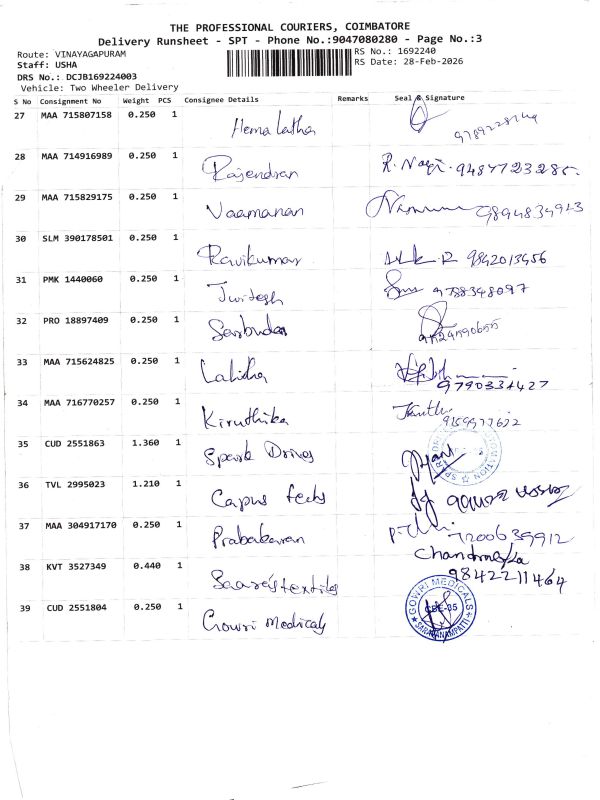 THE PROFESSIONAL COURIERS, COIMBATORE
Delivery Runsheet - SPT - Phone No.:9047080280 - Page No.:3
Route: VINAYAGAPURAM
RS No.: 1692240
Staff: USHA
RS Date: 28-Feb-2026
DRS No.: DCJB169224003
Vehicle: Two Wheeler Delivery
S No Consignment No Weight PCS Consignee Details Remarks Seal & Signature
27 MAA 715807158 0.250 1 Hema Latha
28 MAA 714916989 0.250 1 Rajendran R. Nagi. 9487723285.
29 MAA 715829175 0.250 1 Vaamanan 9894834913
30 SLM 390178501 0.250 1 Ravikumar 9842013456
31 PMK 1440060 0.250 1 Jwitesh 9788348097
32 PRO 18897409 0.250 1
33 MAA 715624825 0.250 1 Lalitha 9790334427
34 MAA 716770257 0.250 1 Kiruthika
35 CUD 2551863 1.360 1 Spark Drives
36 TVL 2995023 1.210 1 Capus techs
37 MAA 304917170 0.250 1 Prabakaran 7200639912
38 KVT 3527349 0.440 1 Saarastextiles 9842211464
39 CUD 2551804 0.250 1 Gowri Medicals
GOWRI MEDICALS
CBE-35
SARAVANAMPATTI